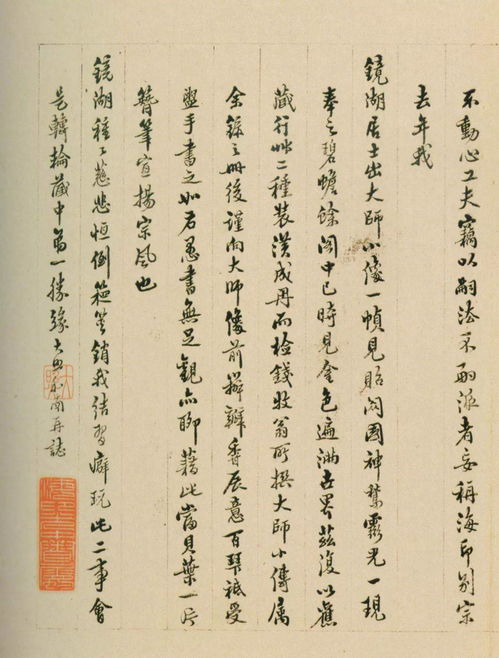 不動心工夫竊以嗣法不嗣派者妄稱海印別宗
去年我
鏡湖居士出大師小像一幀見貽閣國神禁靈光一現
奉之碧蟾餘閣中已時見金色遍滿世界茲復以舊
藏行草二種裝潢成冊而檢錢收翁所撰大師小傳屬
余錄之冊後謹向大師像前爇瓣香展意百拜祗受
盥手書之如右愚書無足觀亦聊藉此當貝葉一片
簪筆宣揚宗風也
鏡湖種種慈悲恒倒篋筐銷我結習癖玩此二事會
是轉輪藏中第一勝緣大 再誌